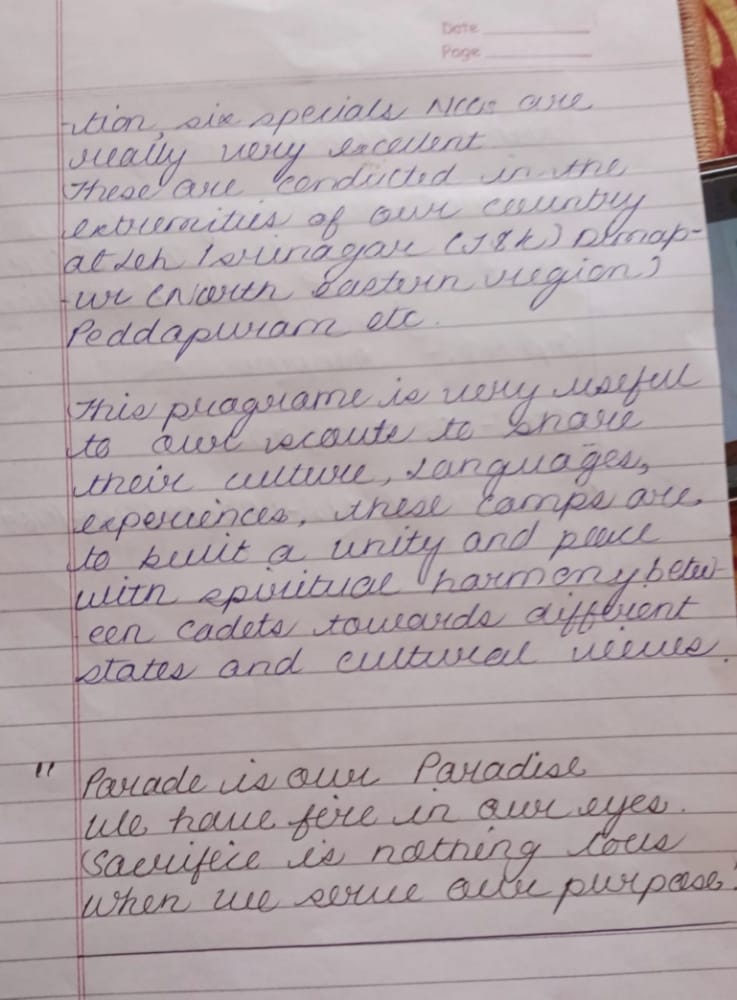 Date
Page
-tion, six specials NCC are
really very excellent
These are conducted in the
extremities of our country
at Leh / srinagar (J&K) Dimap-
-ur (North Eastern region)
Peddapuram etc.
This programe is very useful
to our scouts to share
their culture, Languages,
experiences. these camps are
to built a unity and peace
with spiritual harmony betw-
een cadets towards different
states and cultural views.
" Parade is our Paradise
We have fire in our eyes.
Sacrifice is nothing
when we serve our purpose."